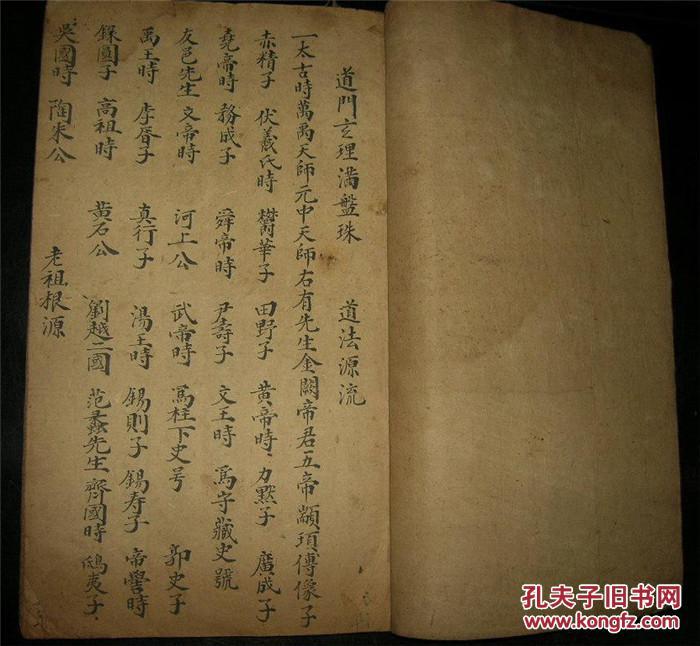 道門玄理满盤珠　道法源流
一太古時萬禹天師元中天師右有先生金闕帝君五帝顓頊傳像子
赤精子　伏羲氏時　欝華子　田野子　黄帝時　力黙子　廣成子
堯帝時　務成子　舜帝時　尹壽子　文王時　爲守藏史號
友邑先生　文帝時　河上公　武帝時　爲柱下史号　郭史子
禹王時　李胥子　真行子　湯王時　錫則子　錫寿子　帝嚳時
錄圖子　高祖時　黄石公　劉越二國　范蠡先生　齊國時　鴟夷子
吳國時　陶朱公　老祖根源
孔夫子旧书网
www.kongfz.com